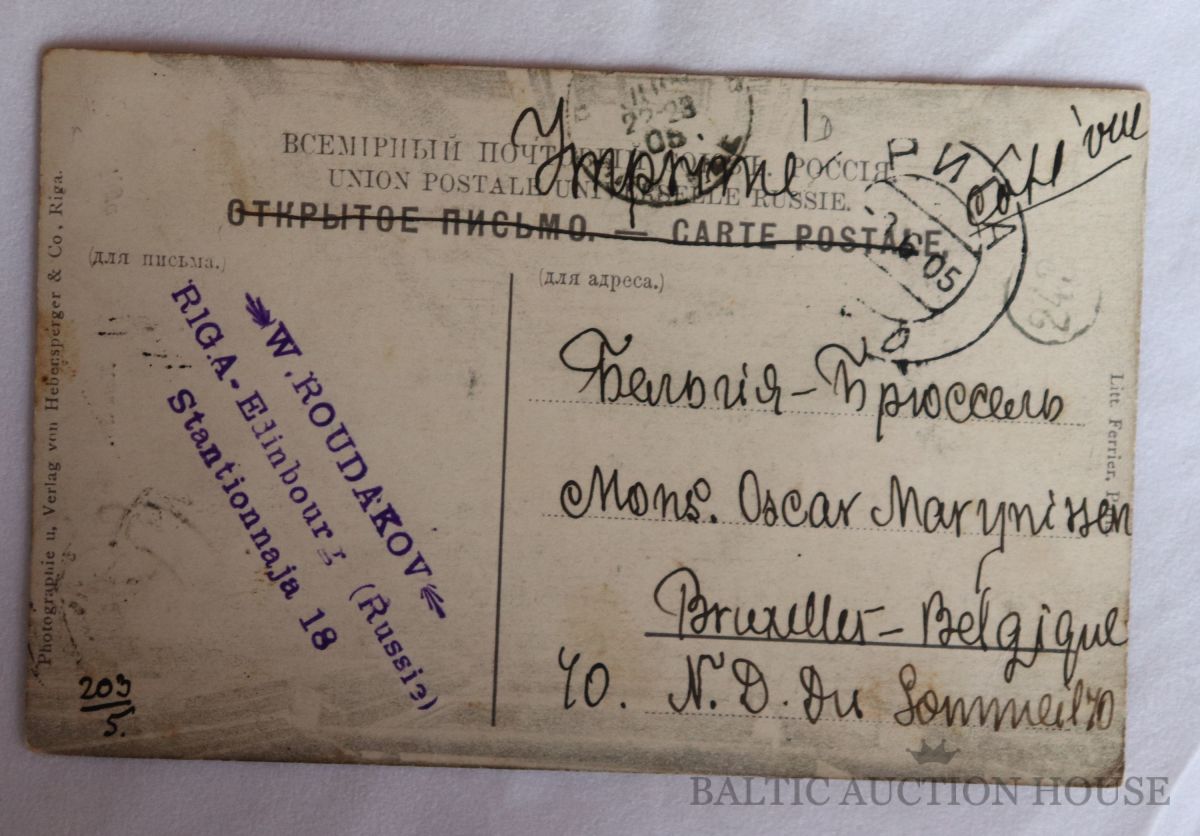 22-23
05
Imprimé
côté vue
ВСЕМІРНЫЙ РОССІЯ.
UNION POSTALE UNIVERSELLE RUSSIE.
ОТКРЫТОЕ ПИСЬМО. — CARTE POSTALE.
05
(для письма.)
(для адреса.)
W. ROUDAKOV
RIGA-Edinbourg (Russie)
Stantionnaja 18
Бельгія - Брюссель
Mons. Oscar Marynissen
Bruxelles - Belgique
40. N. D. Du Sommeil 40
203/5.
Photographie u, Verlag von Hebensperger & Co, Riga.
Litt. Ferrier,
BALTIC AUCTION HOUSE